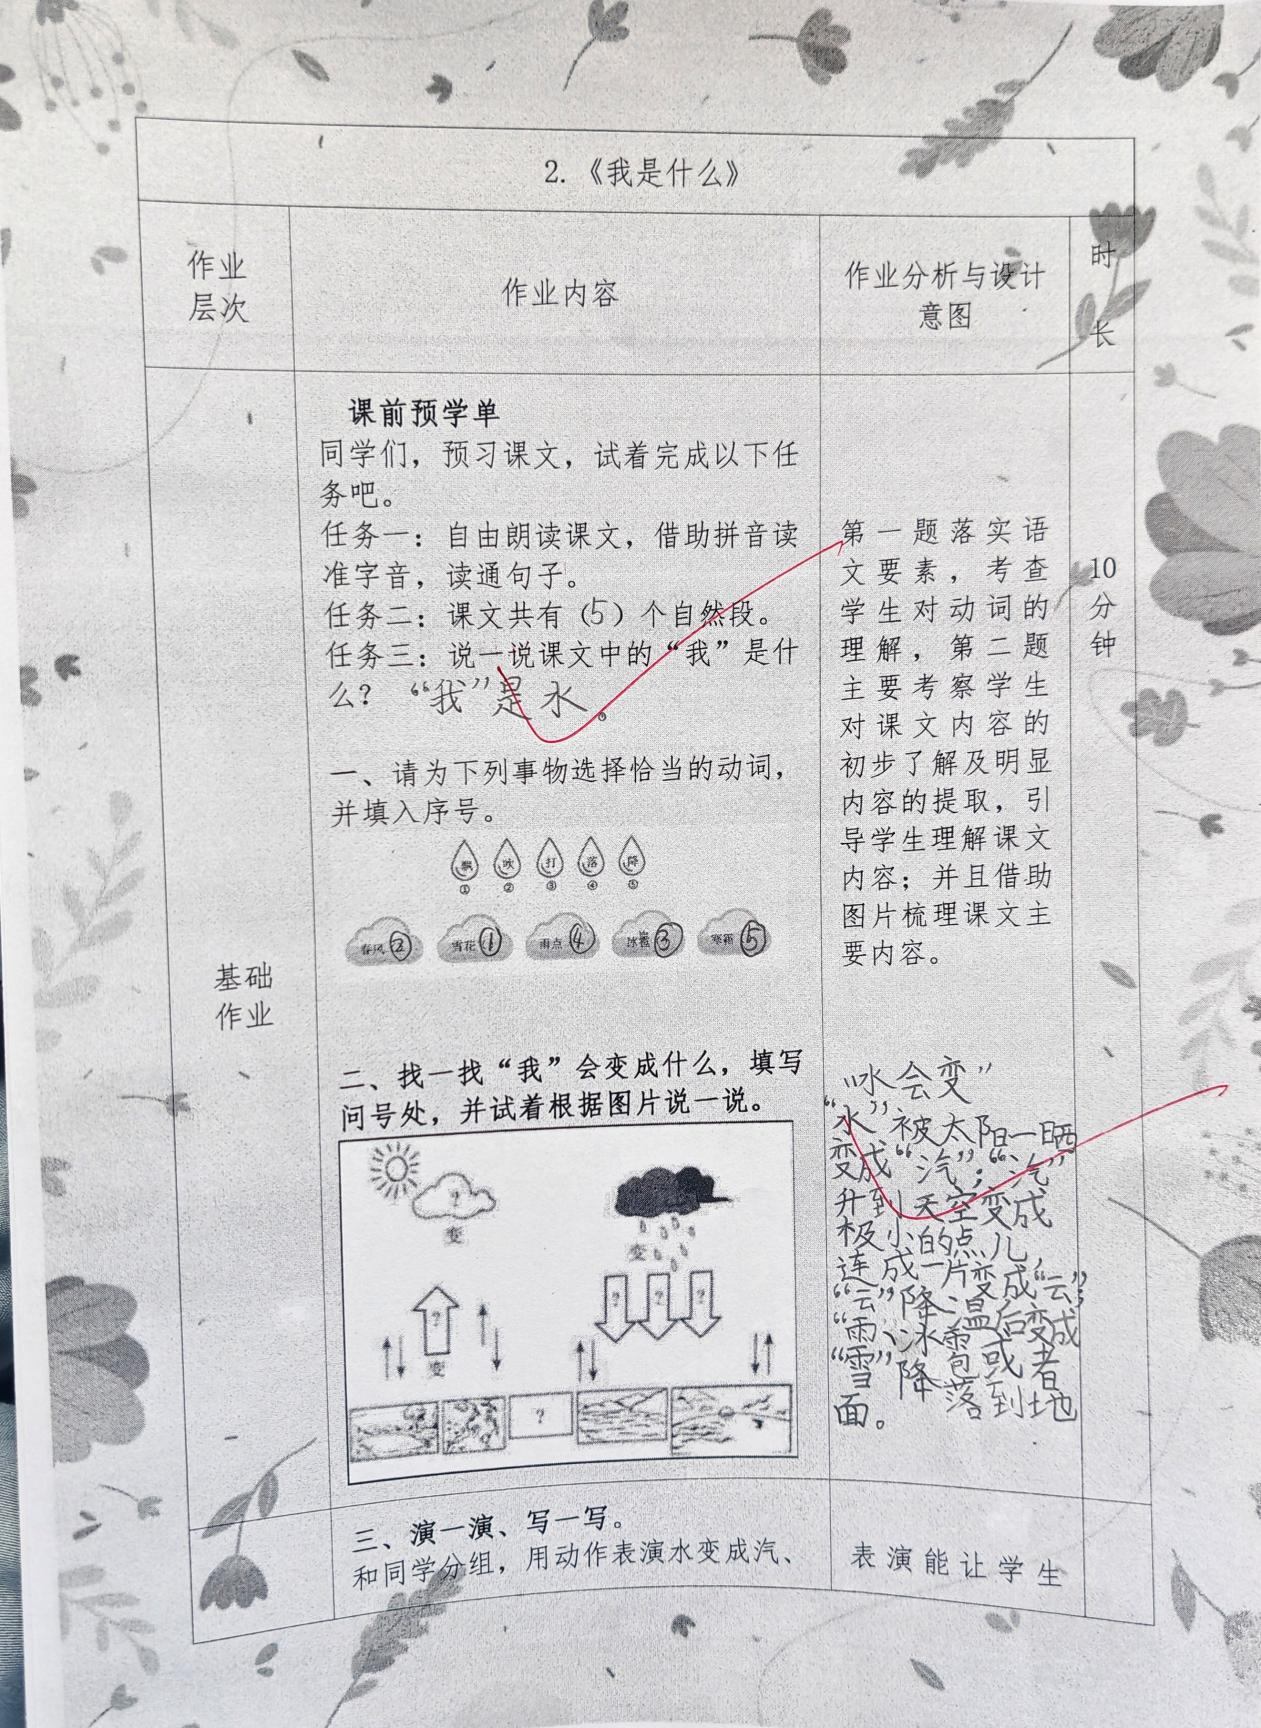 2.《我是什么》
作业
层次
作业内容
作业分析与设计
意图
时
长
基础
作业
课前预学单
同学们，预习课文，试着完成以下任
务吧。
任务一：自由朗读课文，借助拼音读
准字音，读通句子。
任务二：课文共有（5）个自然段。
任务三：说一说课文中的“我”是什
么？ “我”是水。
一、请为下列事物选择恰当的动词，
并填入序号。
飘 吹 打 落 降
① ② ③ ④ ⑤
春风② 雪花① 雨点④ 冰雹③ 寒霜⑤
二、找一找“我”会变成什么，填写
问号处，并试着根据图片说一说。
?
变
变
? ? ?
?
变
?
第一题落实语
文要素，考查
学生对动词的
理解，第二题
主要考察学生
对课文内容的
初步了解及明显
内容的提取，引
导学生理解课文
内容；并且借助
图片梳理课文主
要内容。
“水会变”
“水”被太阳一晒
变成“汽”；“汽”
升到天空变成
极小的点儿，
连成一片变成“云”；
“云”降温后变成
“雨”、冰雹或者
“雪”降落到地
面。
10
分
钟
三、演一演、写一写。
和同学分组，用动作表演水变成汽、
表演能让学生